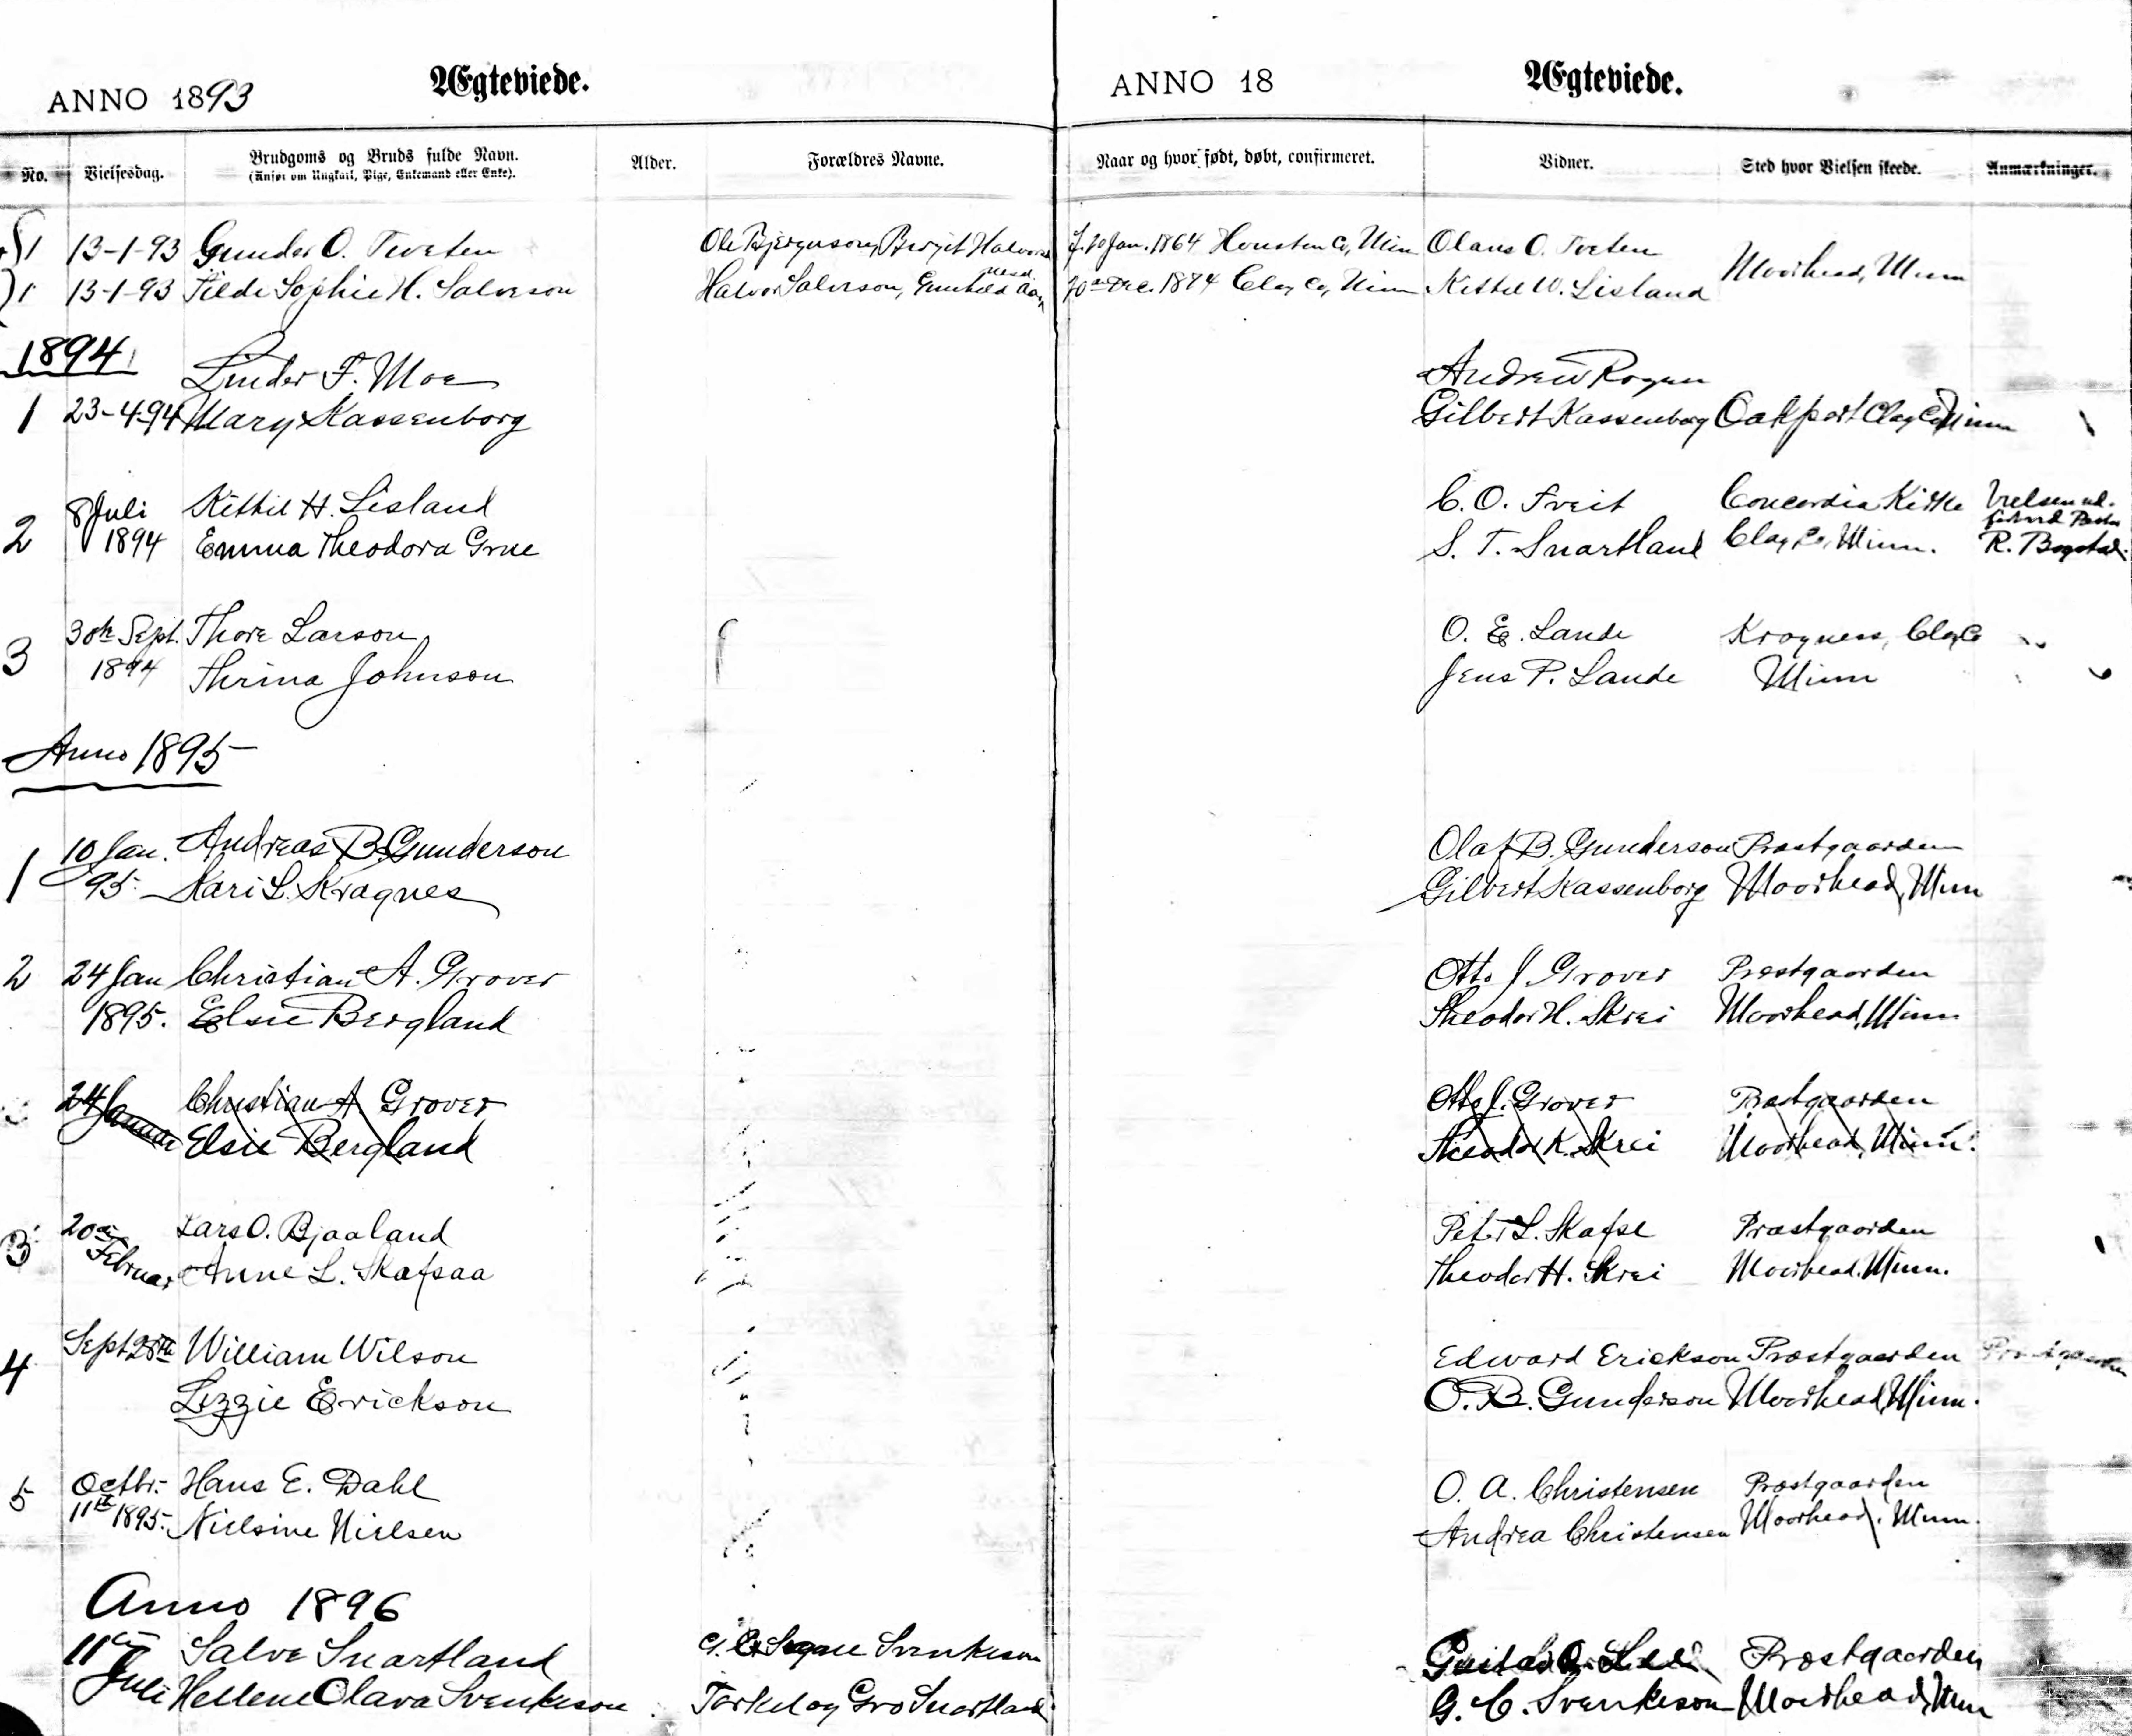 ANNO 1893 Ægteviede. ANNO 18 Ægteviede.
No. Vielsesdag. Brudgoms og Bruds fulde Navn. Alder. Forældres Navne. Naar og hvor født, døbt, confirmeret. Vidner. Sted hvor Vielsen skeede. Anmærkninger.
(Anfør om Ungkarl, Pige, Enkemand eller Enke).
1 13-1-93 Gunder O. Tveten Ole Bjergusong Bergit f. 20 Jan. 1864 Houston Co, Minn Olaus O. Tveten
1 13-1-93 Tilde Sophie H. Salveson Halvor Salveson, Gunhild Dec. 1874 Clay Co, Minn Kittil W. Lisland Moorhead, Minn
1894
Linder F. Moe Andrew Rogen
1 23-4-94 Mary Kassenborg Gilbert Kassenborg Oakport Clay Co Minn
8 Juli Kittil H. Lisland C. O. Tveit Concordia Kirke
2 1894 Emma Theodora Grue S. T. Snartland Clay Co, Minn. R. Bogstad.
30te Sept. Thore Larson O. E. Lande Kragness, Clay Co
3 1894 Thrina Johnson Jens P. Lande Minn
Anno 1895
10 Jan. Andreas B. Gunderson Olaf B. Gunderson Præstgaarden
1 95. Kari L. Kragnes Gilbert Kassenborg Moorhead, Minn
2 24 Jan Christian A. Grover Otto J. Grover Præstgaarden
1895. Elsie Bergland Theodor H. Skrei Moorhead, Minn
24 Christian A Grover Otto J. Grover Præstgaarden
Elsie Bergland Theodor K. Skrei Moorhead, Minn.
20de Lars O. Bjaaland Peter L. Skafse Præstgaarden
3 Februar Anne L. Skafsaa Theodor H. Skrei Moorhead, Minn.
4 Sept 28th William Wilson Edward Erickson Præstgaarden
Lizzie Erickson O. B. Gunderson Moorhead, Minn.
5 Octbr. Hans E. Dahl O. A. Christensen Præstgaarden
11th 1895. Nielsine Nielsen Andrea Christensen Moorhead, Minn.
Anno 1896
11te Salve Snartland G. Svenkeson Præstgaarden
Juli Hellene Olava Svenkeson Torkel og Gro Snartland G. C. Svenkeson Moorhead, Minn